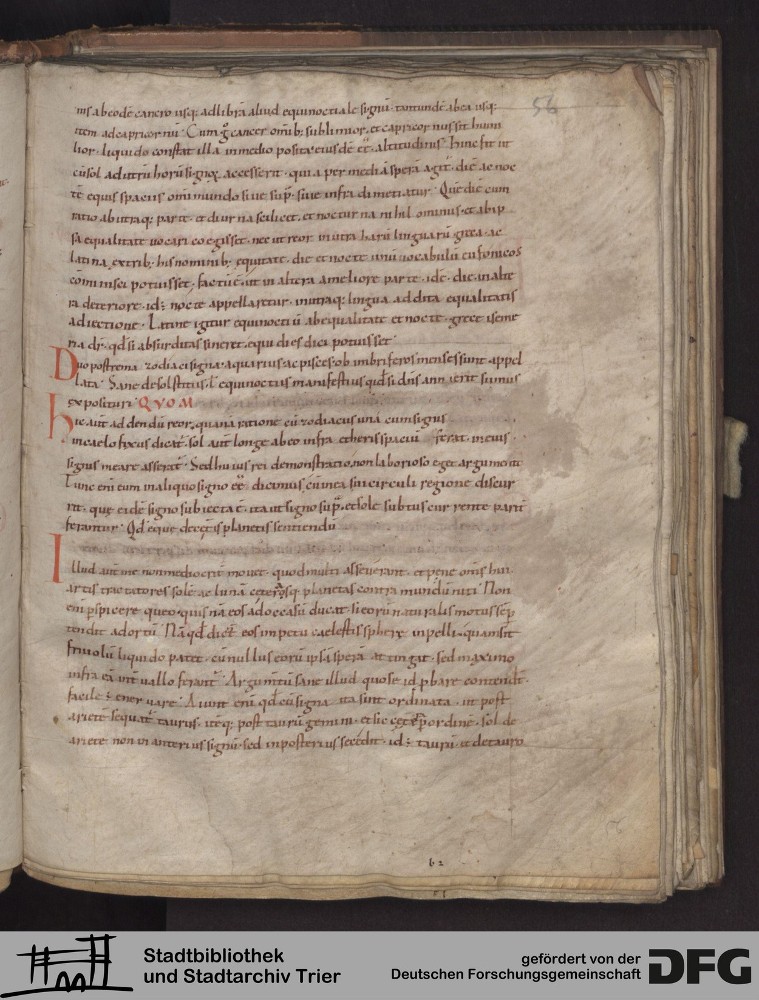 nis ab eodē cancro usq; ad librā aliud equinoctiale signū. tantundē ab ea usq;
item ad capricornū. Cum g̊ cancer omīb; sublimior. et capricornus sit humi
lior. liquido constat illa in medio posita eiusdē eē altitudinis. Hinc fit ut
cū sol ad utrū horū signoꝝ accesserit. quia per mediā sperā agit. diē ac noc
tē equis spaciis omī mundo siue sup̄. siue infra dimetiatur. Que diē cum
ratio ab utraq; parte. et diurna scilicet. et nocturna nihil ominus. et ab ip
sa equalitate uocari coegisset. nec ut reor in utra harū linguarū. greca. ac
latina. ex trib; his nominib; equitate. die et nocte unū uocabulū eufonicos
cōminisci potuisset. factū ē. ut in altera a meliore parte. id ē. die. in alte
ra deteriore. id; nocte appellaretur. in utraq; lingua addita equalitatis
adiectione. Latine igitur equinoctiū ab equalitate et nocte. grece iseme
ria dr̄. qd̄ si absurditas sineret. equidies dici potuisset.
Duo postrema zodiaci signa. aquarius ac pisces. ob imbriferos menses sunt appel
lata. Sane de solstitiis. ł equinoctiis manifestius qd̄ si dn̄s annuerit sumus
exposituri. QVOM
hic aūt addendū reor. qua ratione cū zodiacus una cum signis
in caelo fixus dicat̄. sol aūt longe ab eo infra etheris spaciū feratur. in eius
signis meare asserat̄. Sed huius rei demonstratio. non laborioso eget argumento
Tunc enī eum in aliquo signo eē dicimus. cū in ea sui circuli regione discur
rit. quę eidē signo subiecta ē. ita ut signo sup̄. et sole subtus currente pariť
ferantur. Qd̄ eque de cęťis planetis sentiendū
Illud aūt me non mediocrit̄ mouet. quod multi asseuerant. et pene om̄s huius
artis tractatores solē ac lunā. cęterosq; planetas contra mundū niti. Non
enī p̄spicere queo. quis nā eos ad occasū ducat. si eorū naturalis motus semp̄
tendit ad ortū. Nā qd̄ dicť eos impetu caelestis spherę inpelli. quam sit
friuolū liquido patet. cū nullus eorū ipsā sperā attingat. sed maximo
infra eā intuallo ferant̄. Argumtū sane illud quo se id p̄bare contendť.
facile; eneruare. Aiunt enī qd̄ cū signa ita sint ordinata. ut post
arietē sequat̄ taurus. itēq; post taurū gemini. et sic cętera p ordinē. sol de
ariete non in anterius signū. sed in posterius secedit. id; taurū. et de tauro
56
b2
Stadtbibliothek
und Stadtarchiv Trier
gefördert von der
Deutschen Forschungsgemeinschaft
DFG